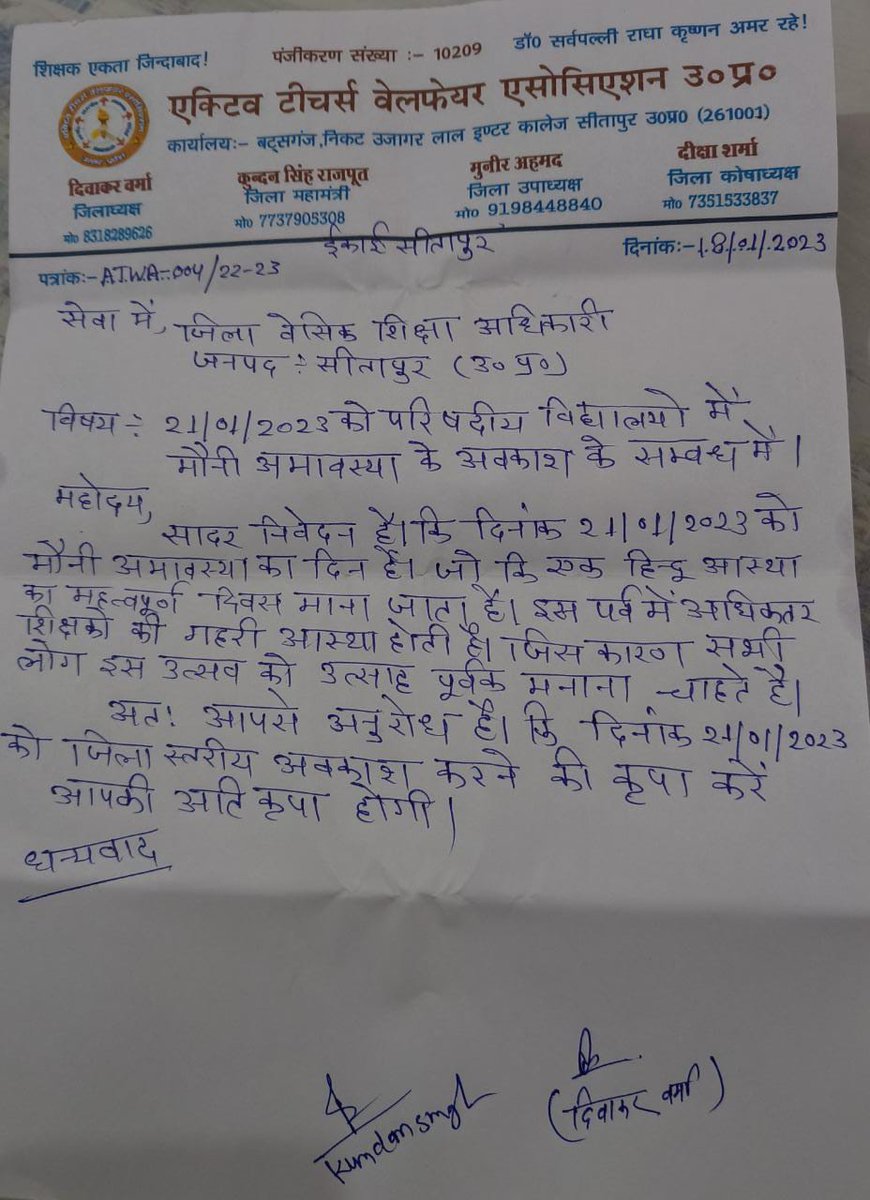 शिक्षक एकता जिन्दाबाद!
पंजीकरण संख्या :- 10209
डॉ0 सर्वपल्ली राधा कृष्णन अमर रहे!
एक्टिव टीचर्स वेलफेयर एसोसिएशन उ०प्र०
कार्यालयः- बट्सगंज,निकट उजागर लाल इण्टर कालेज सीतापुर उ0प्र0 (261001)
दिवाकर वर्मा
जिलाध्यक्ष
मो0 8318289626
कुन्दन सिंह राजपूत
जिला महामंत्री
मो0 7737905308
मुनीर अहमद
जिला उपाध्यक्ष
मो0 9198448840
दीक्षा शर्मा
जिला कोषाध्यक्ष
मो0 7351533837
ईकाई सीतापुर
दिनांकः-18/01/2023
पत्रांकः-A.T.W.A-004/22-23
सेवा में, जिला वेसिक शिक्षा अधिकारी
जनपद :- सीतापुर (उ० प्र०)
विषय :- 21/01/2023 को परिषदीय विद्यालयो में
मौनी अमावस्या के अवकाश के सम्वध में।
महोदय,
सादर निवेदन है। कि दिनांक 21/01/2023 को
मौनी अमावस्या का दिन है। जो कि एक हिन्दू आस्था
का महत्वपूर्ण दिवस माना जाता है। इस पर्व में अधिकतर
शिक्षको की गहरी आस्था होती है। जिस कारण सभी
लोग इस उत्सव को उत्साह पूर्वक मनाना चाहते है।
अतः आपसे अनुरोध है। कि दिनांक 21/01/2023
को जिला स्तरीय अवकाश करने की कृपा करें
आपकी अति कृपा होगी।
धन्यवाद
Kundan Singh
(दिवाकर वर्मा)